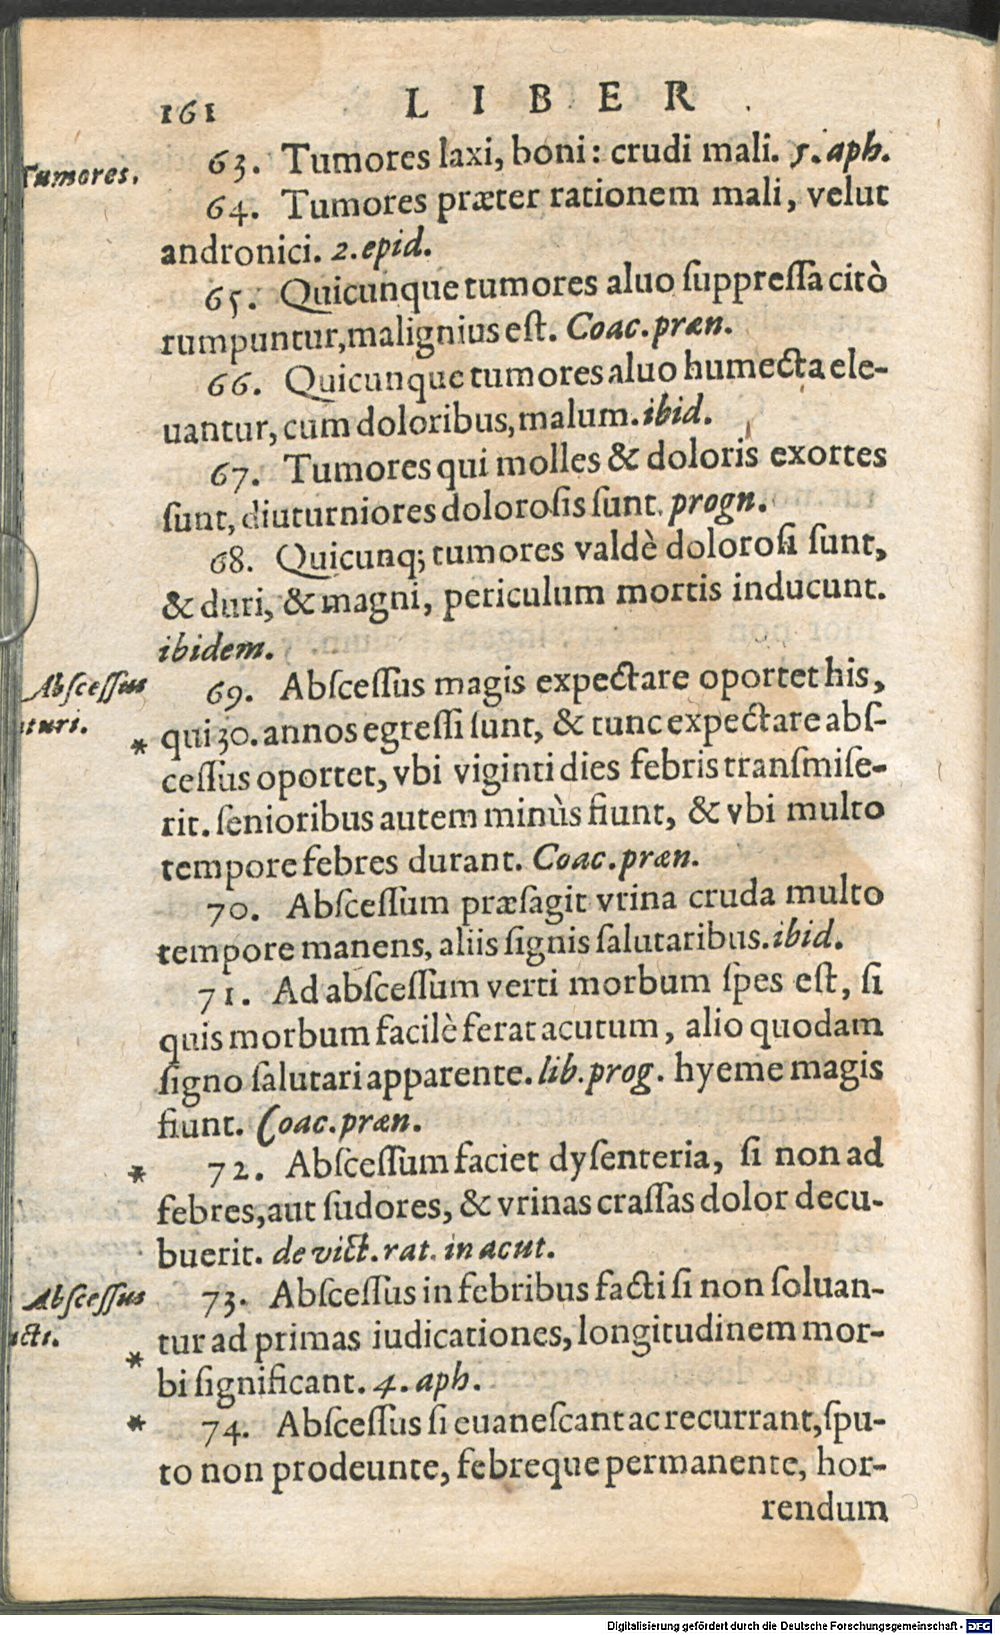 161 LIBER
Tumores.
63. Tumores laxi, boni: crudi mali. 5. aph.
64. Tumores præter rationem mali, velut
andronici. 2. epid.
65. Quicunque tumores aluo ſuppreſſa citò
rumpuntur, malignius eſt. Coac. præn.
66. Quicunque tumores aluo humecta ele-
uantur, cum doloribus, malum. ibid.
67. Tumores qui molles & doloris exortes
ſunt, diuturniores doloroſis ſunt. progn.
68. Quicunq; tumores valdè doloroſi ſunt,
& duri, & magni, periculum mortis inducunt.
ibidem.
Abſceſſus
turi.
69. Abſceſſus magis expectare oportet his,
* qui 30. annos egreſſi ſunt, & tunc expectare abſ-
ceſſus oportet, vbi viginti dies febris tranſmiſe-
rit. ſenioribus autem minùs fiunt, & vbi multo
tempore febres durant. Coac. præn.
70. Abſceſſum præſagit vrina cruda multo
tempore manens, aliis ſignis ſalutaribus. ibid.
71. Ad abſceſſum verti morbum ſpes eſt, ſi
quis morbum facilè ferat acutum, alio quodam
ſigno ſalutari apparente. lib. prog. hyeme magis
fiunt. Coac. præn.
* 72. Abſceſſum faciet dyſenteria, ſi non ad
febres, aut ſudores, & vrinas craſſas dolor decu-
buerit. de vict. rat. in acut.
Abſceſſus
acti.
73. Abſceſſus in febribus facti ſi non ſoluan-
tur ad primas iudicationes, longitudinem mor-
* bi ſignificant. 4. aph.
* 74. Abſceſſus ſi euaneſcant ac recurrant, ſpu-
to non prodeunte, febreque permanente, hor-
rendum
Digitalisierung gefördert durch die Deutsche Forschungsgemeinschaft - DFG